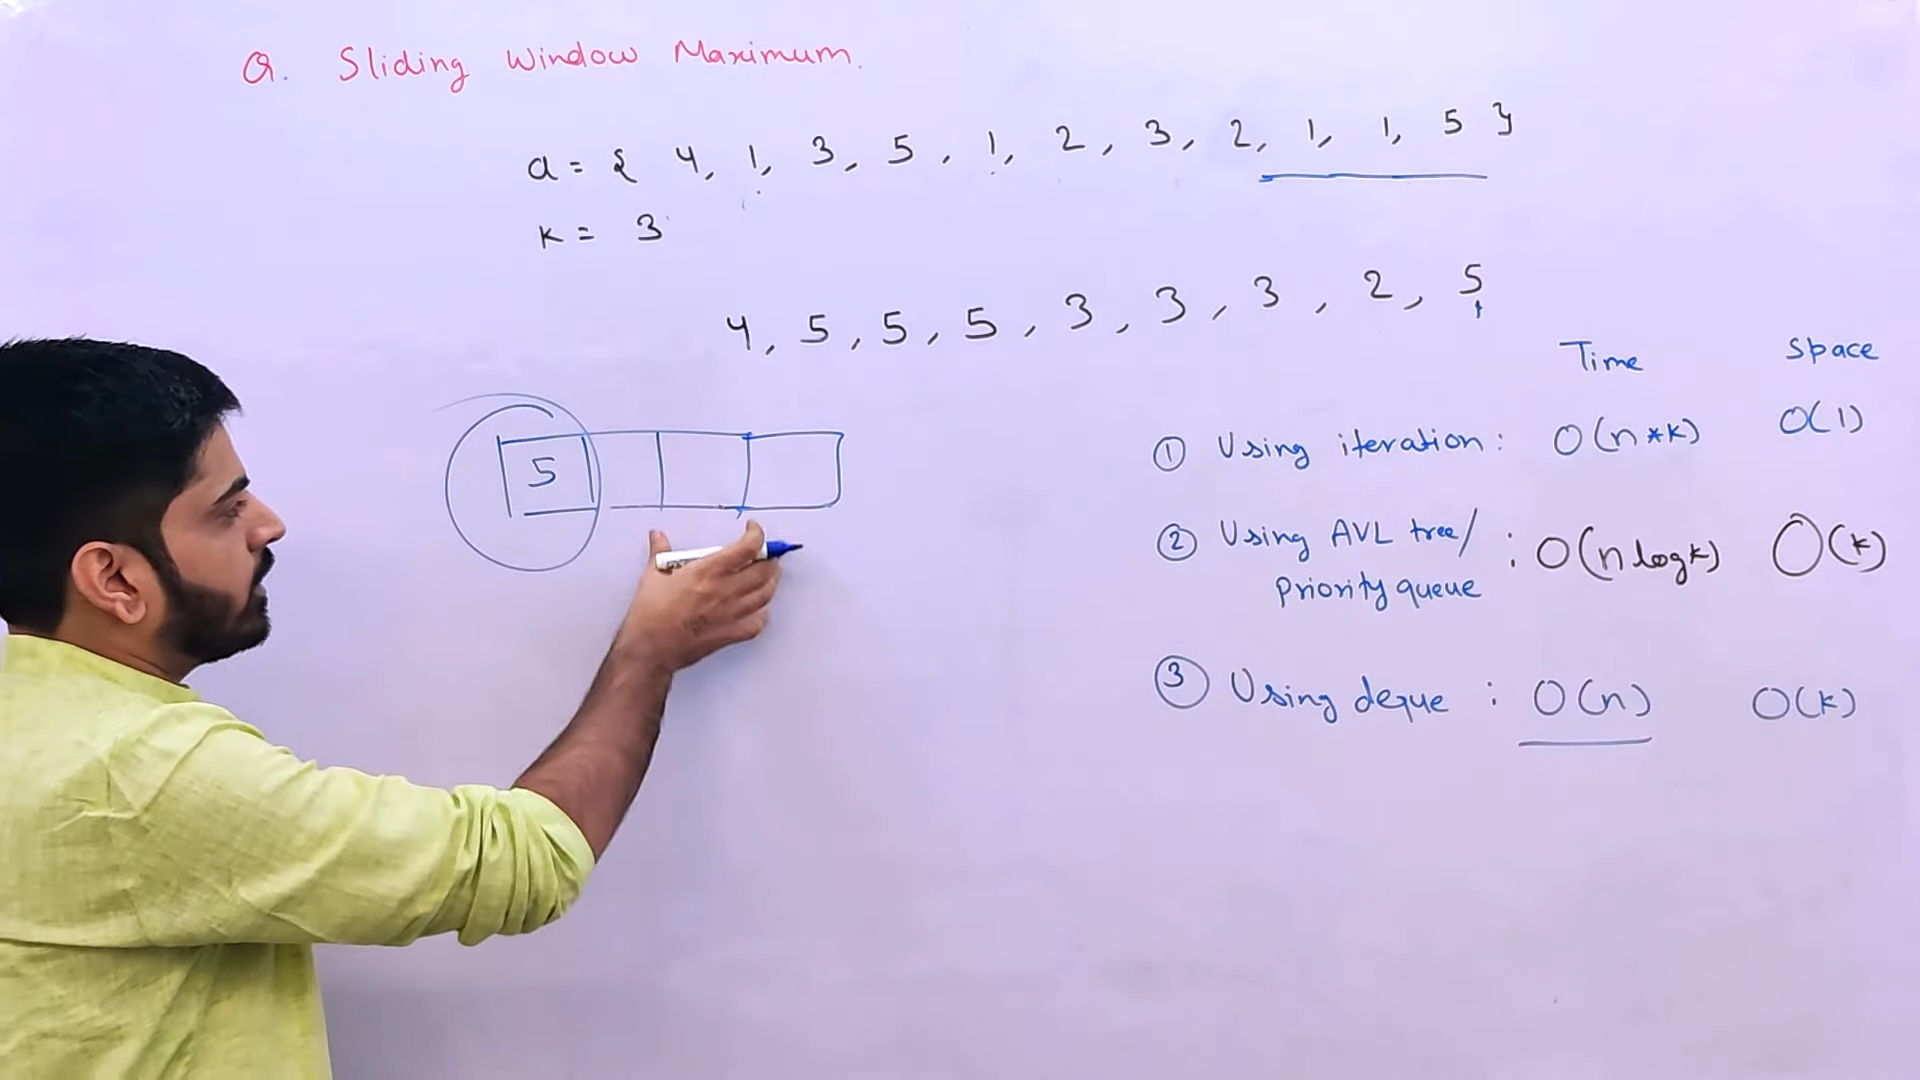 Q. Sliding Window Maximum.
a = { 4, 1, 3, 5, 1, 2, 3, 2, 1, 1, 5 }
K = 3
4, 5, 5, 5, 3, 3, 3, 2, 5
Time Space
5
① Using iteration: O(n*k) O(1)
② Using AVL tree/ priority queue : O(n log k) O(k)
③ Using deque : O(n) O(k)